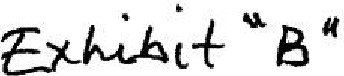 Exhibit "B"